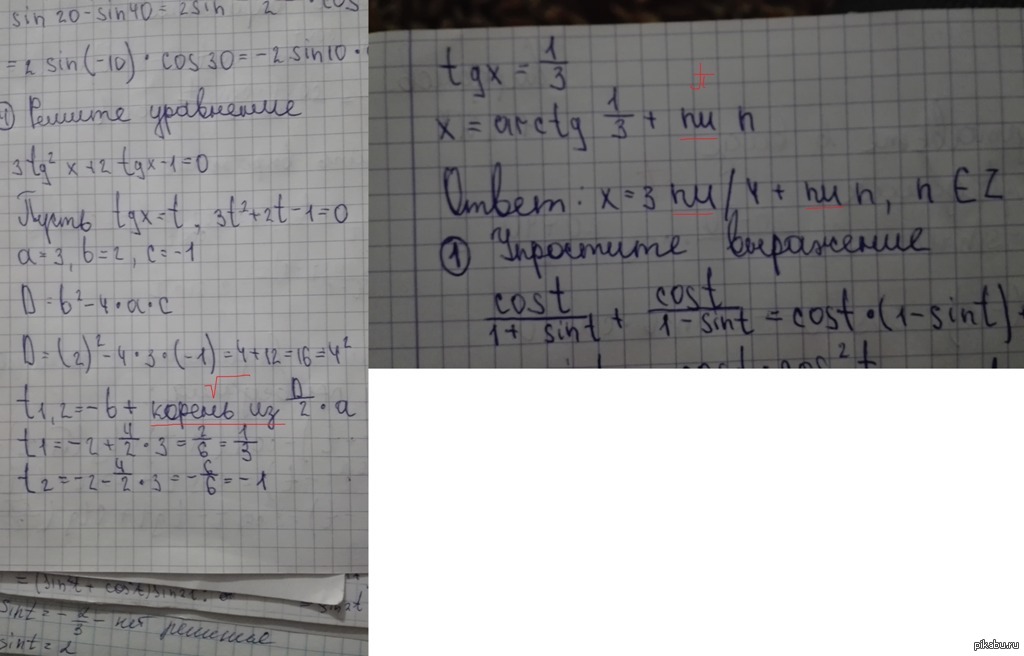 sin 20 - sin 40 = 2 sin 2 cos
= 2 sin(-10) · cos 30 = -2 sin 10 ·
4) Решите уравнение
3tg² x + 2 tgx - 1 = 0
Пусть tgx = t, 3t² + 2t - 1 = 0
a = 3, b = 2, c = -1
D = b² - 4 · a · c
D = (2)² - 4 · 3 · (-1) = 4 + 12 = 16 = 4²
√
t1,2 = -b + корень из D/2 · a
t1 = -2 + 4/2 · 3 = 2/6 = 1/3
t2 = -2 - 4/2 · 3 = -6/6 = -1
sint = - 2/3 - нет решение
sint = 2
tgx = 1/3
π
x = arctg 1/3 + пи n
Ответ: x = 3 пи/4 + пи n, n ∈ Z
① Упростите выражение
cost/1 + sint + cost/1 - sint = cost · (1 - sint) +
pikabu.ru